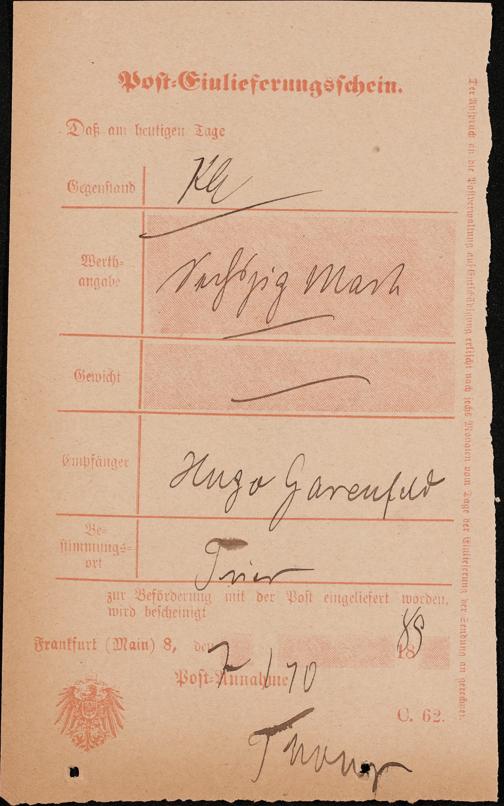 Post-Einlieferungsschein.
Daß am heutigen Tage
Gegenstand
Werth-
angabe
Sechszig Mark
Gewicht
Empfänger
Hugo Garenfeld
Be-
stimmungs-
ort
Trier
zur Beförderung mit der Post eingeliefert worden,
wird bescheinigt
Frankfurt (Main) 8, den 7/10 1889
Post-Annahme
C. 62.
Der Anspruch an die Postverwaltung auf Entschädigung erlischt nach sechs Monaten vom Tage der Einlieferung der Sendung an gerechnet.